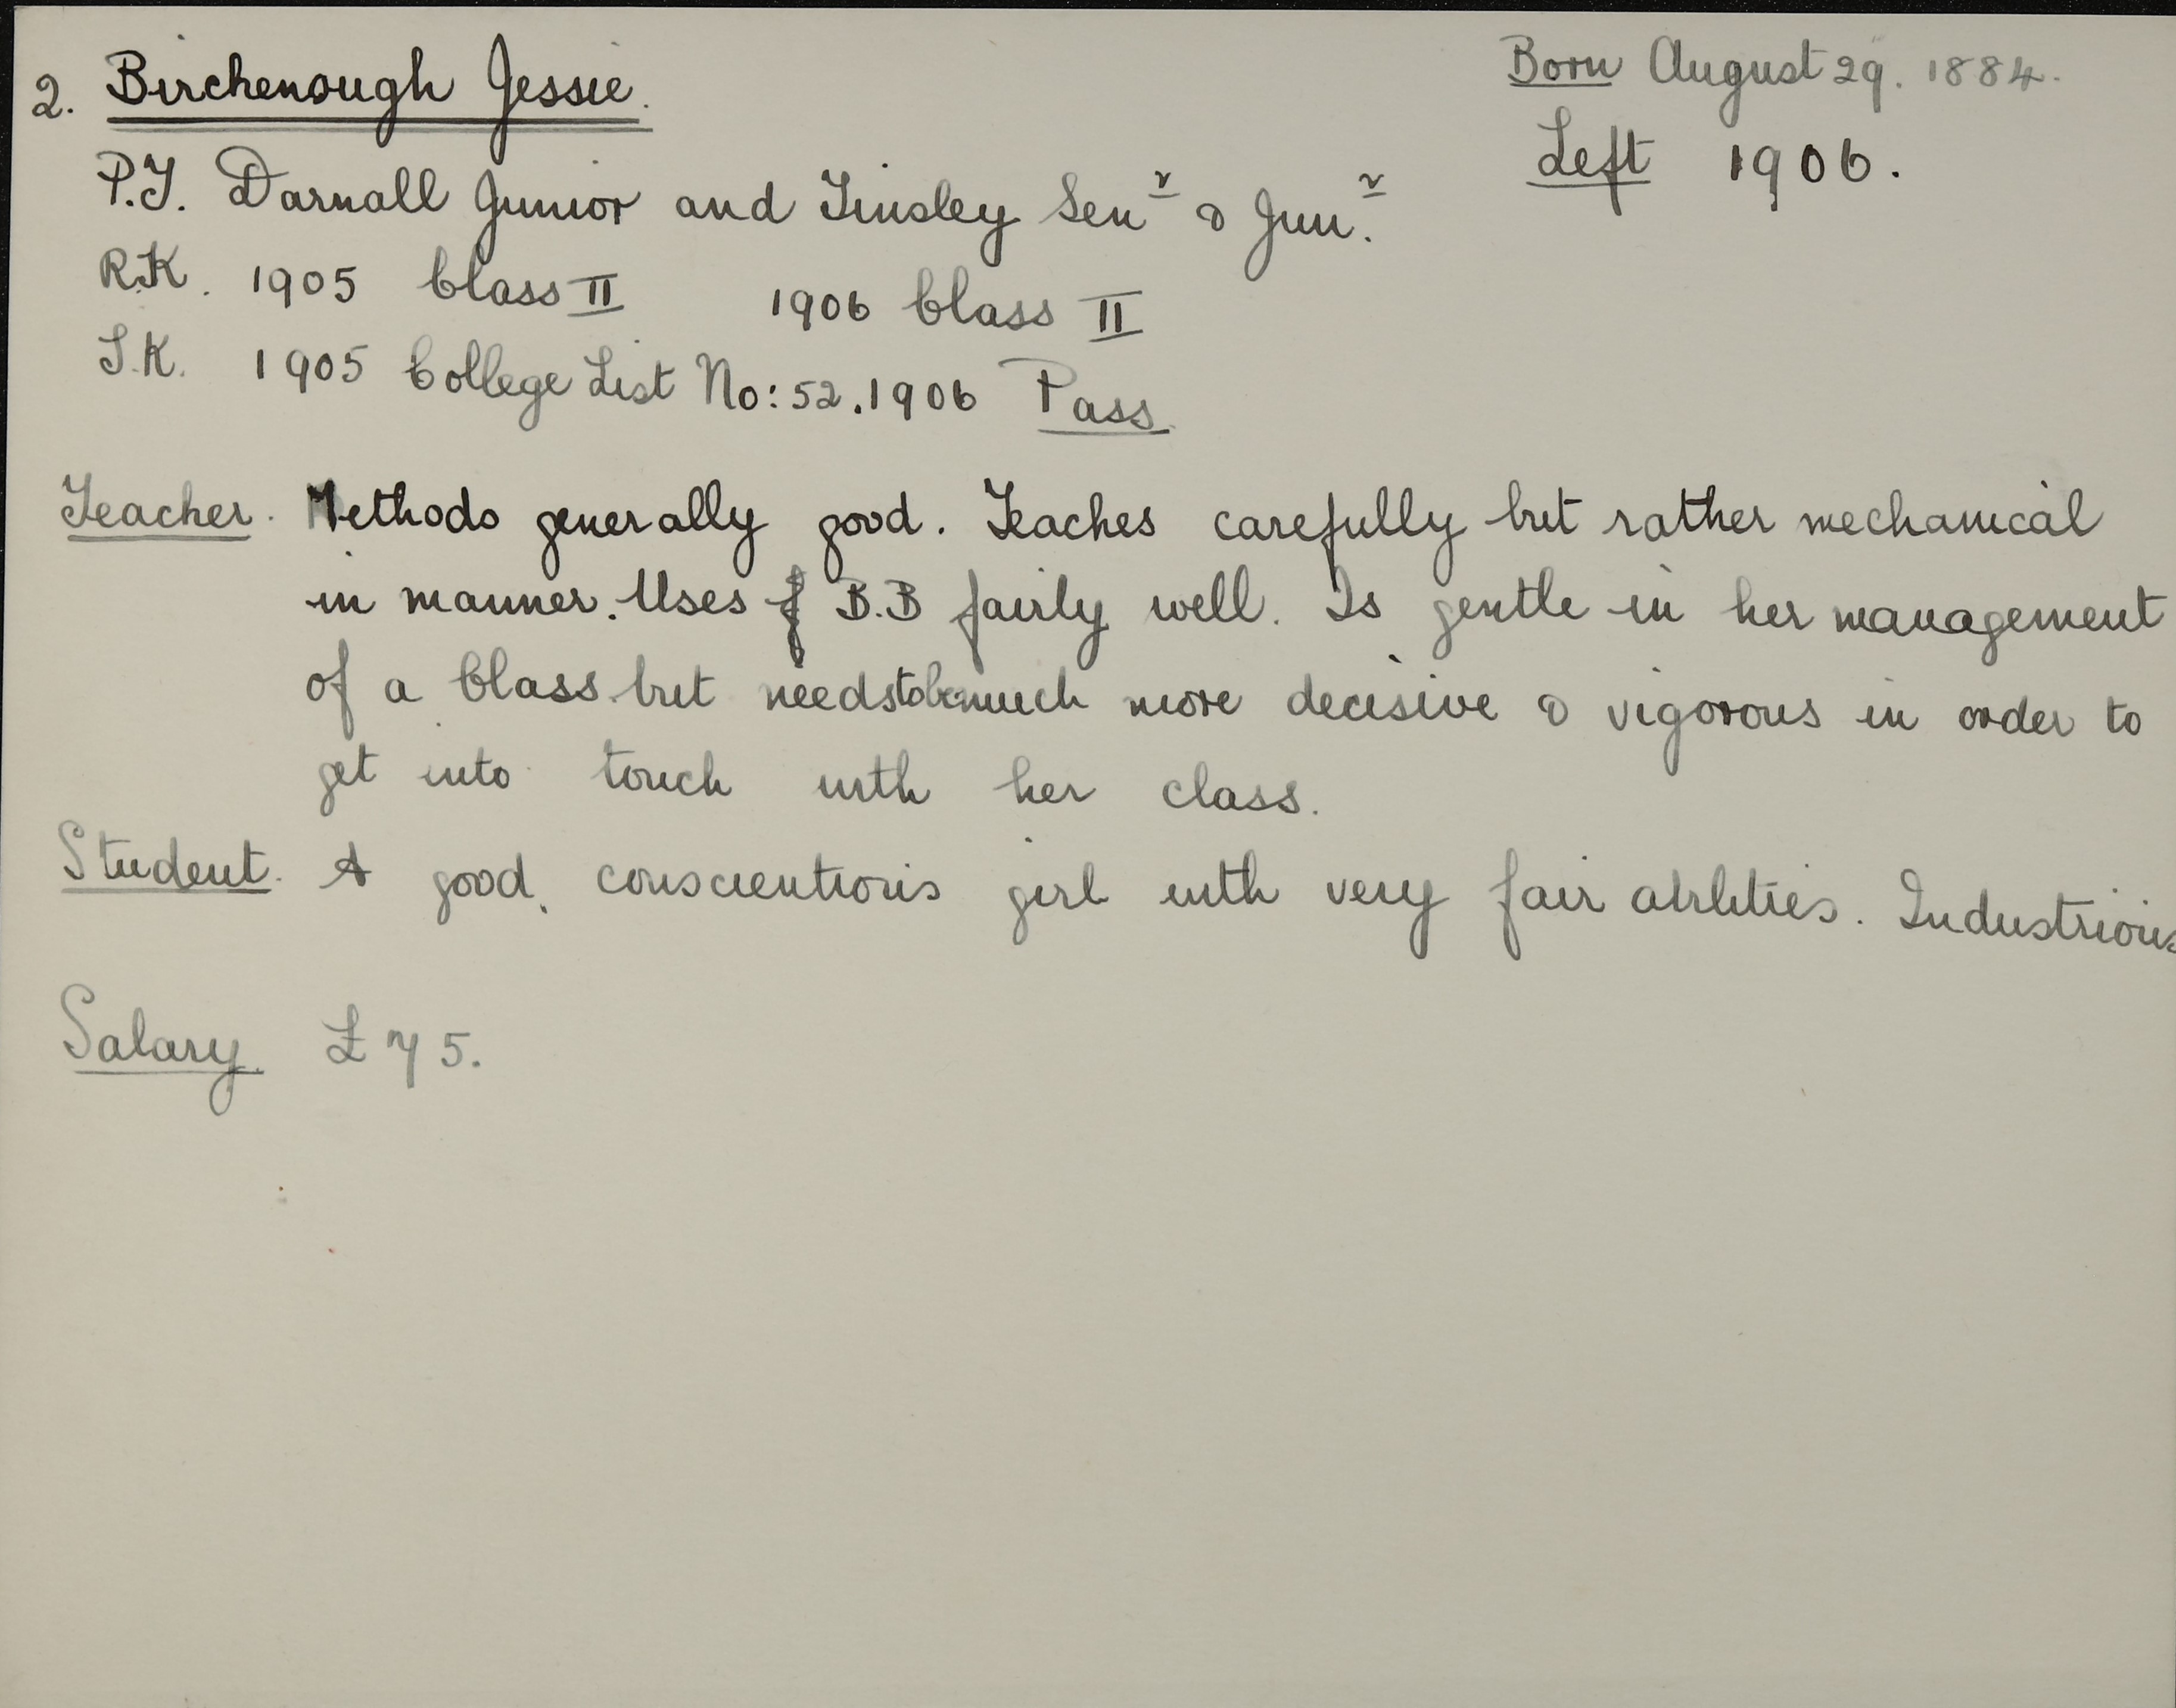 2. Birchenough Jessie.
Born August 29. 1884.
Left 1906.
P.T. Darnall Junior and Tinsley Senr & Junr.
R.K. 1905 Class II 1906 Class II
S.K. 1905 College List No: 52. 1906 Pass
Teacher. Methods generally good. Teaches carefully but rather mechanical
in manner. Uses B.B fairly well. Is gentle in her management
of a Class but needs to be much more decisive & vigorous in order to
get into touch with her class.
Student. A good, conscientious girl with very fair abilities. Industrious
Salary. £75.